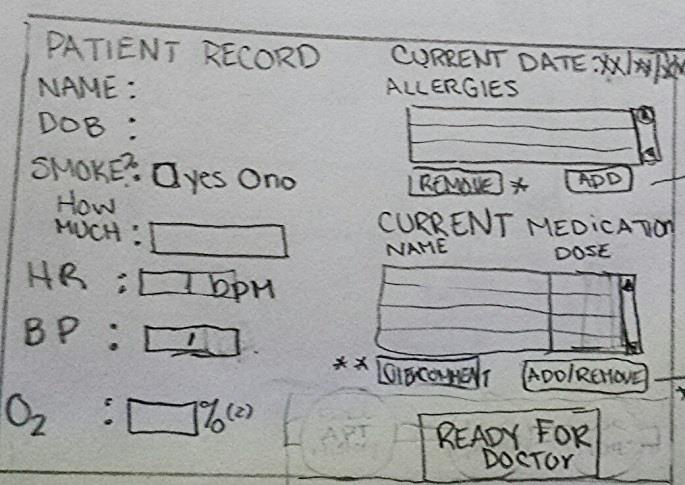 PATIENT RECORD
NAME :
DOB :
SMOKE?: yes Ono
HOW
MUCH :
HR : bpM
BP : /
O2 : % (2)
CURRENT DATE: XX/XX/XX
ALLERGIES
REMOVE *
ADD
CURRENT MEDICATION
NAME DOSE
**
ADD/REMOVE
APT
READY FOR
DOCTOr